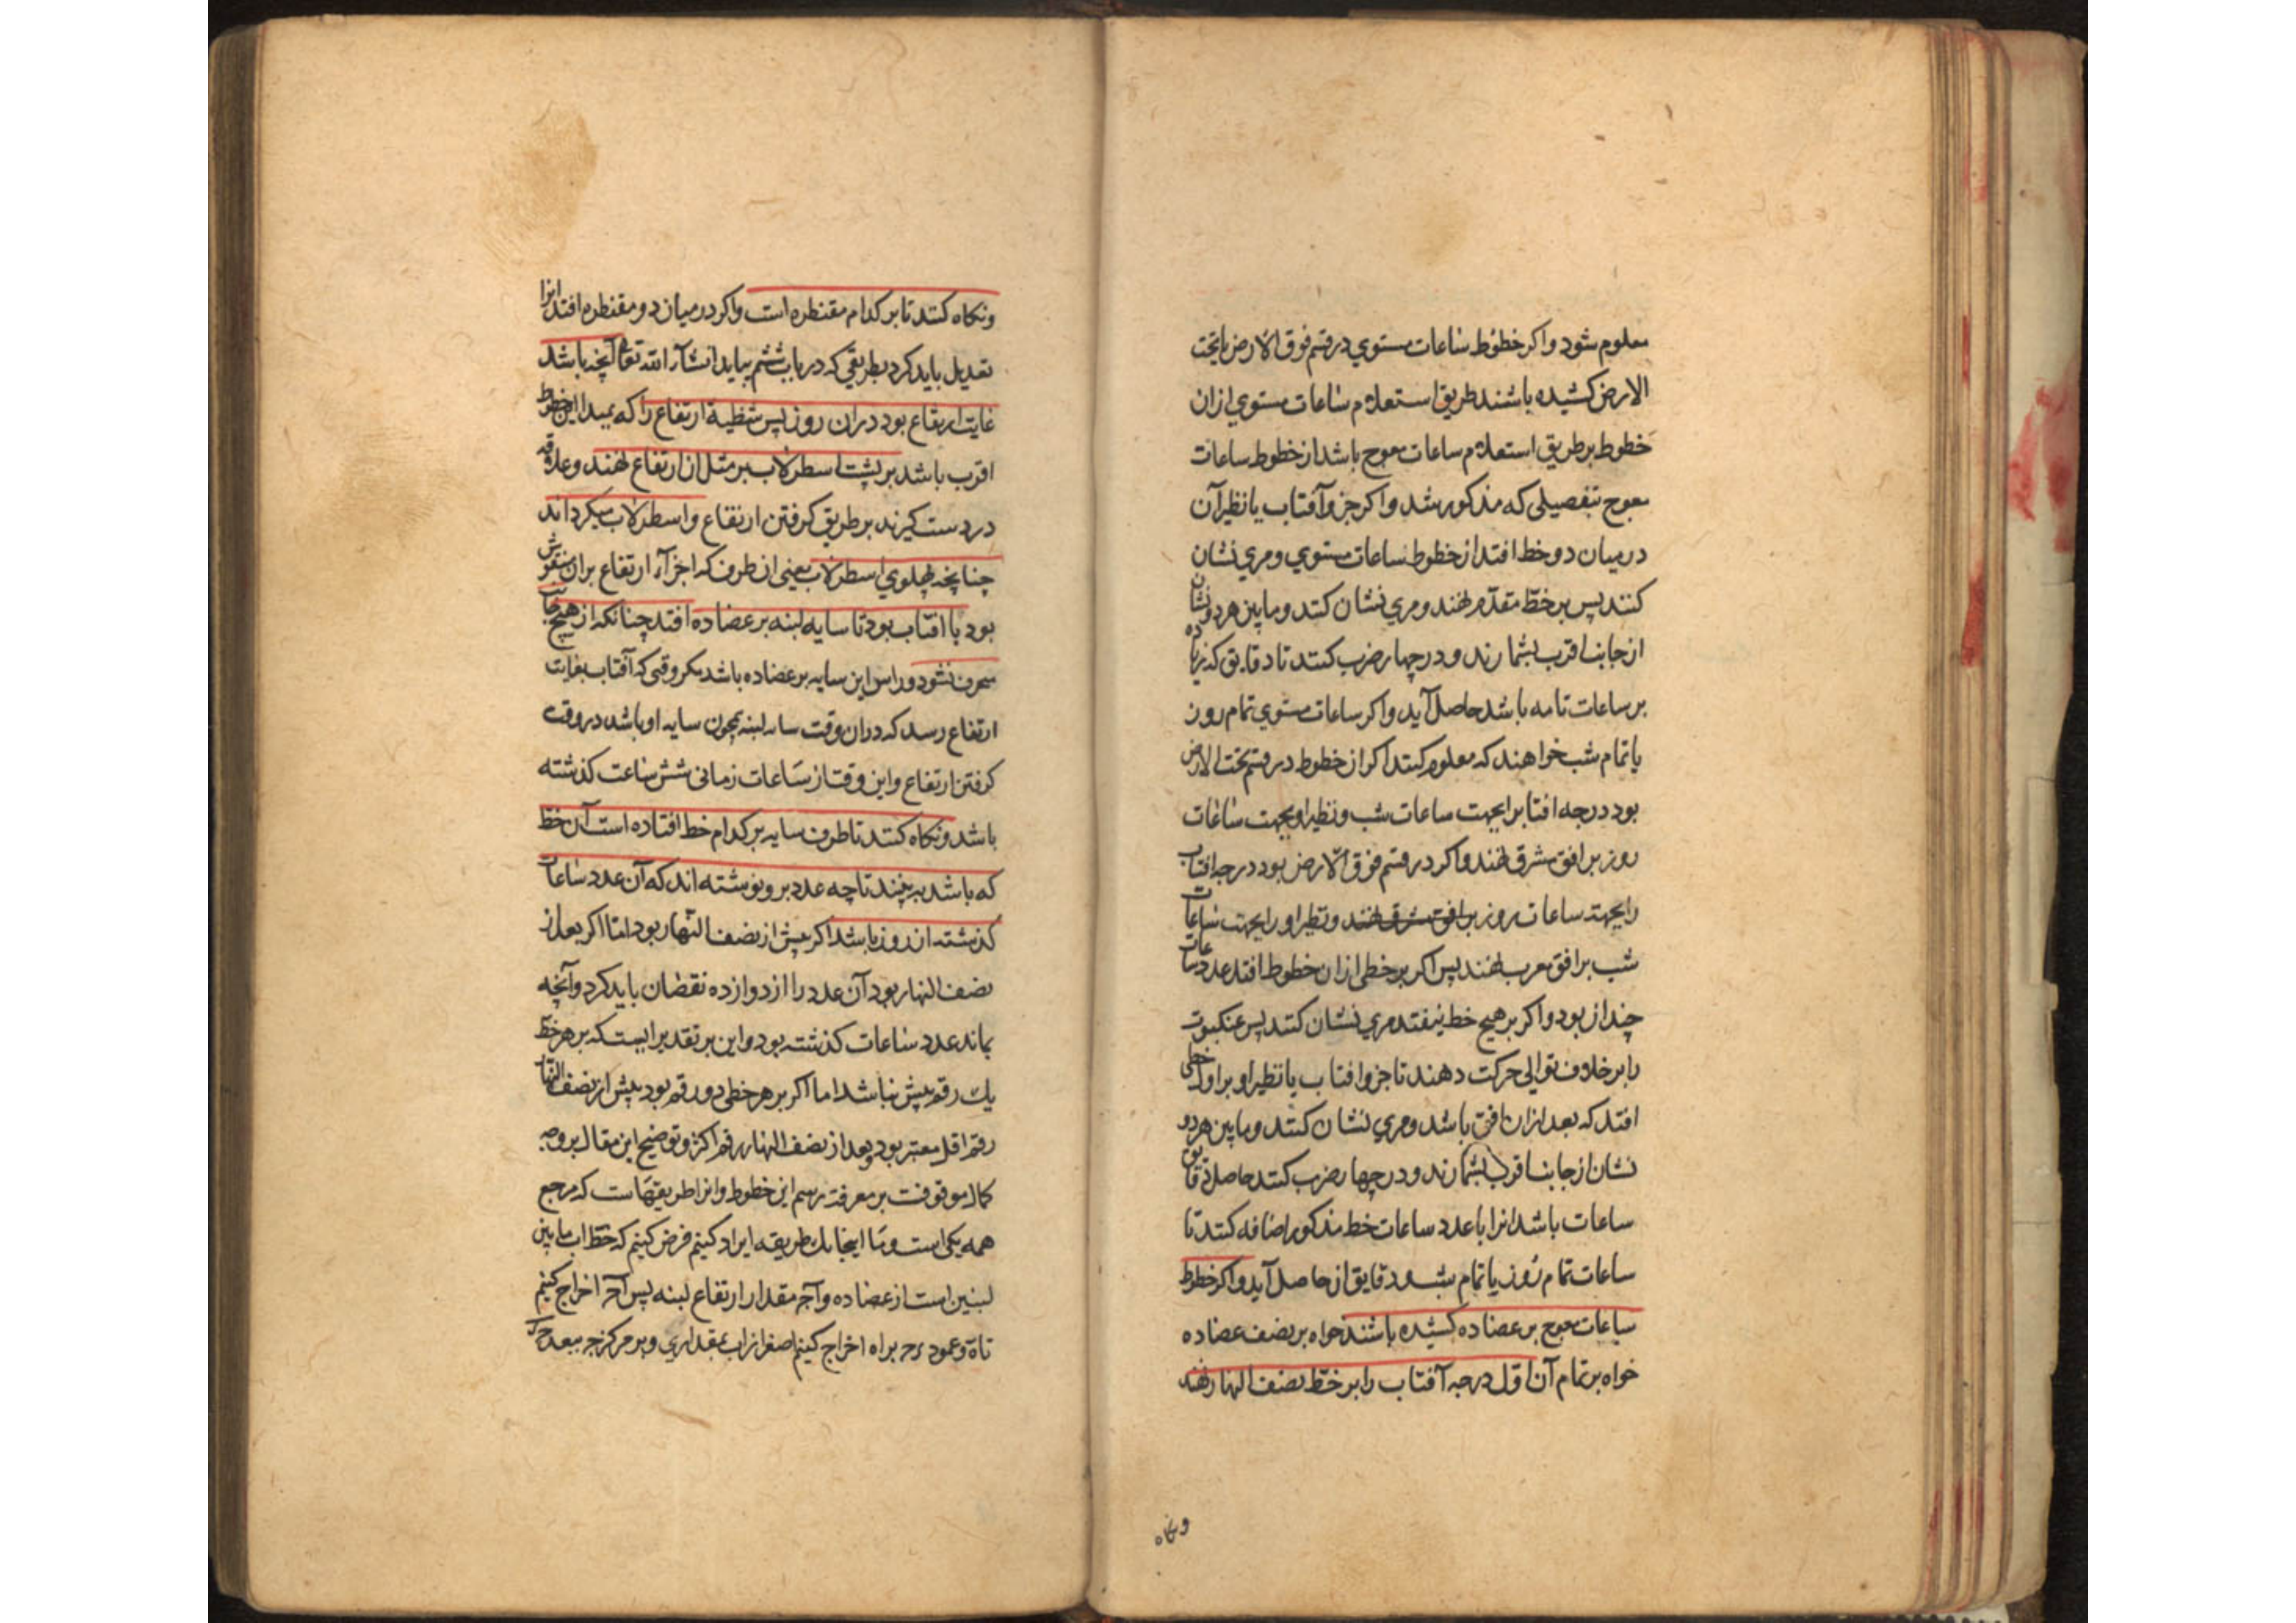 معلوم شود و اکر خطوط ساعات مستوي در قسم فوق الارض یا تحت
الارض کشیده باشند طریق استعلام ساعات مستوي ازان
خطوط بر طریق استعلام ساعات معوج باشد از خطوط ساعات
معوج بتفصیلی که مذکور شد و اکر جزو آفتاب یا نظیر آن
در میان دو خط افتد از خطوط ساعات مستوي و مري نشان
کنند پس بر خط مقدم نهند و مري نشان کنند و ما بین هر دو نشان
از جانب اقرب بشمارند و در چهار ضرب کنند تا دقایق که زیاده
بر ساعات تامه باشد حاصل آید و اکر ساعات مستوي تمام روز
یا تمام شب خواهند که معلوم کنند اکر از خطوط در قسم تحت الارض
بود درجه افتاب را بجهت ساعات شب و نظیر او بجهت ساعات
روز بر افق مشرق نهند و اکر در قسم فوق الارض بود درجه افتاب
را بجهت ساعات روز بر افق مشرق نهند و نظیر او را بجهت ساعات
شب بر افق مغرب نهند پس اکر بر خطی ازان خطوط افتد عدد ساعات
چندان بود و اکر بر هیچ خط نیفتد مري نشان کنند پس عنکبوت
را بر خلاف توالی حرکت دهند تا جزو افتاب یا نظیر او بر اول خطی
افتد که بعد ازان افق باشد و مري نشان کنند و ما بین هر دو
نشان از جانب اقرب بشمارند و در چهار ضرب کنند حاصل دقایق
ساعات باشد انرا با عدد ساعات خط مذکور اضافه کنند تا
ساعات تمام روز یا تمام شب و دقایق ان حاصل آید و اکر خطوط
ساعات معوج بر عضاده کشیده باشند خواه بر نصف عضاده
خواه بر تمام آن اول درجه آفتاب را بر خط نصف النهار نهند
ونکاه
ونکاه کنند تا بر کدام مقنطره است و اکر در میان دو مقنطره افتد انرا
تعدیل باید کرد بطریقی که در باب ششم بیاید انشاء الله تعالی آنچه باشد
غایت ارتفاع بود دران روز پس شظیة ارتفاع را که بمبدا این خطوط
اقرب باشد بر پشت اسطرلاب بر مثل ان ارتفاع نهند و علاقه
در دست کیرند بر طریق کرفتن ارتفاع و اسطرلاب میکردانند
چنانچه پهلوي اسطرلاب یعنی ان طرف که اجزآء ارتفاع بران منقوش
بود با افتاب بود تا سایه لبنه بر عضاده افتد چنانکه از هیچ جانب
منحرف نشود و راس این سایه بر عضاده باشد مکر وقتی که آفتاب بغایت
ارتفاع رسد که دران وقت سایه لبنه همچون سایه او باشد در وقت
کرفتن ارتفاع و این وقت از ساعات زمانی شش ساعت کذشته
باشد و نکاه کنند تا طرف سایه بر کدام خط افتاده است آن خط
که باشد ببینند تا چه عدد برو نوشته اند که آن عدد ساعات
کذشته از روز باشد اکر پیش از نصف النهار بود اما اکر بعد از
نصف النهار بود آن عدد را از دوازده نقصان باید کرد و آنچه
بماند عدد ساعات کذشته بود و این بر تقدیر ایست که بر هر خط
یک رقم بیش نباشد اما اکر بر هر خطی دو رقم بود پیش از نصف النهار
رقم اقل معتبر بود و بعد از نصف النهار رقم اکثر و توضیح این مقال بر وجه
کمال موقوفست بر معرفت رسم این خطوط و انرا طریقهاست که مرجع
همه یکی است و ما اینجا یک طریقه ایراد کنیم فرض کنیم که خط اب ما بین
لبنین است از عضاده و آج مقدار ارتفاع لبنه پس آج اخراج کنیم
تا ة و عمود رح براه اخراج کنیم اصغر از اب بمقداري و بر مرکز ج ببعد